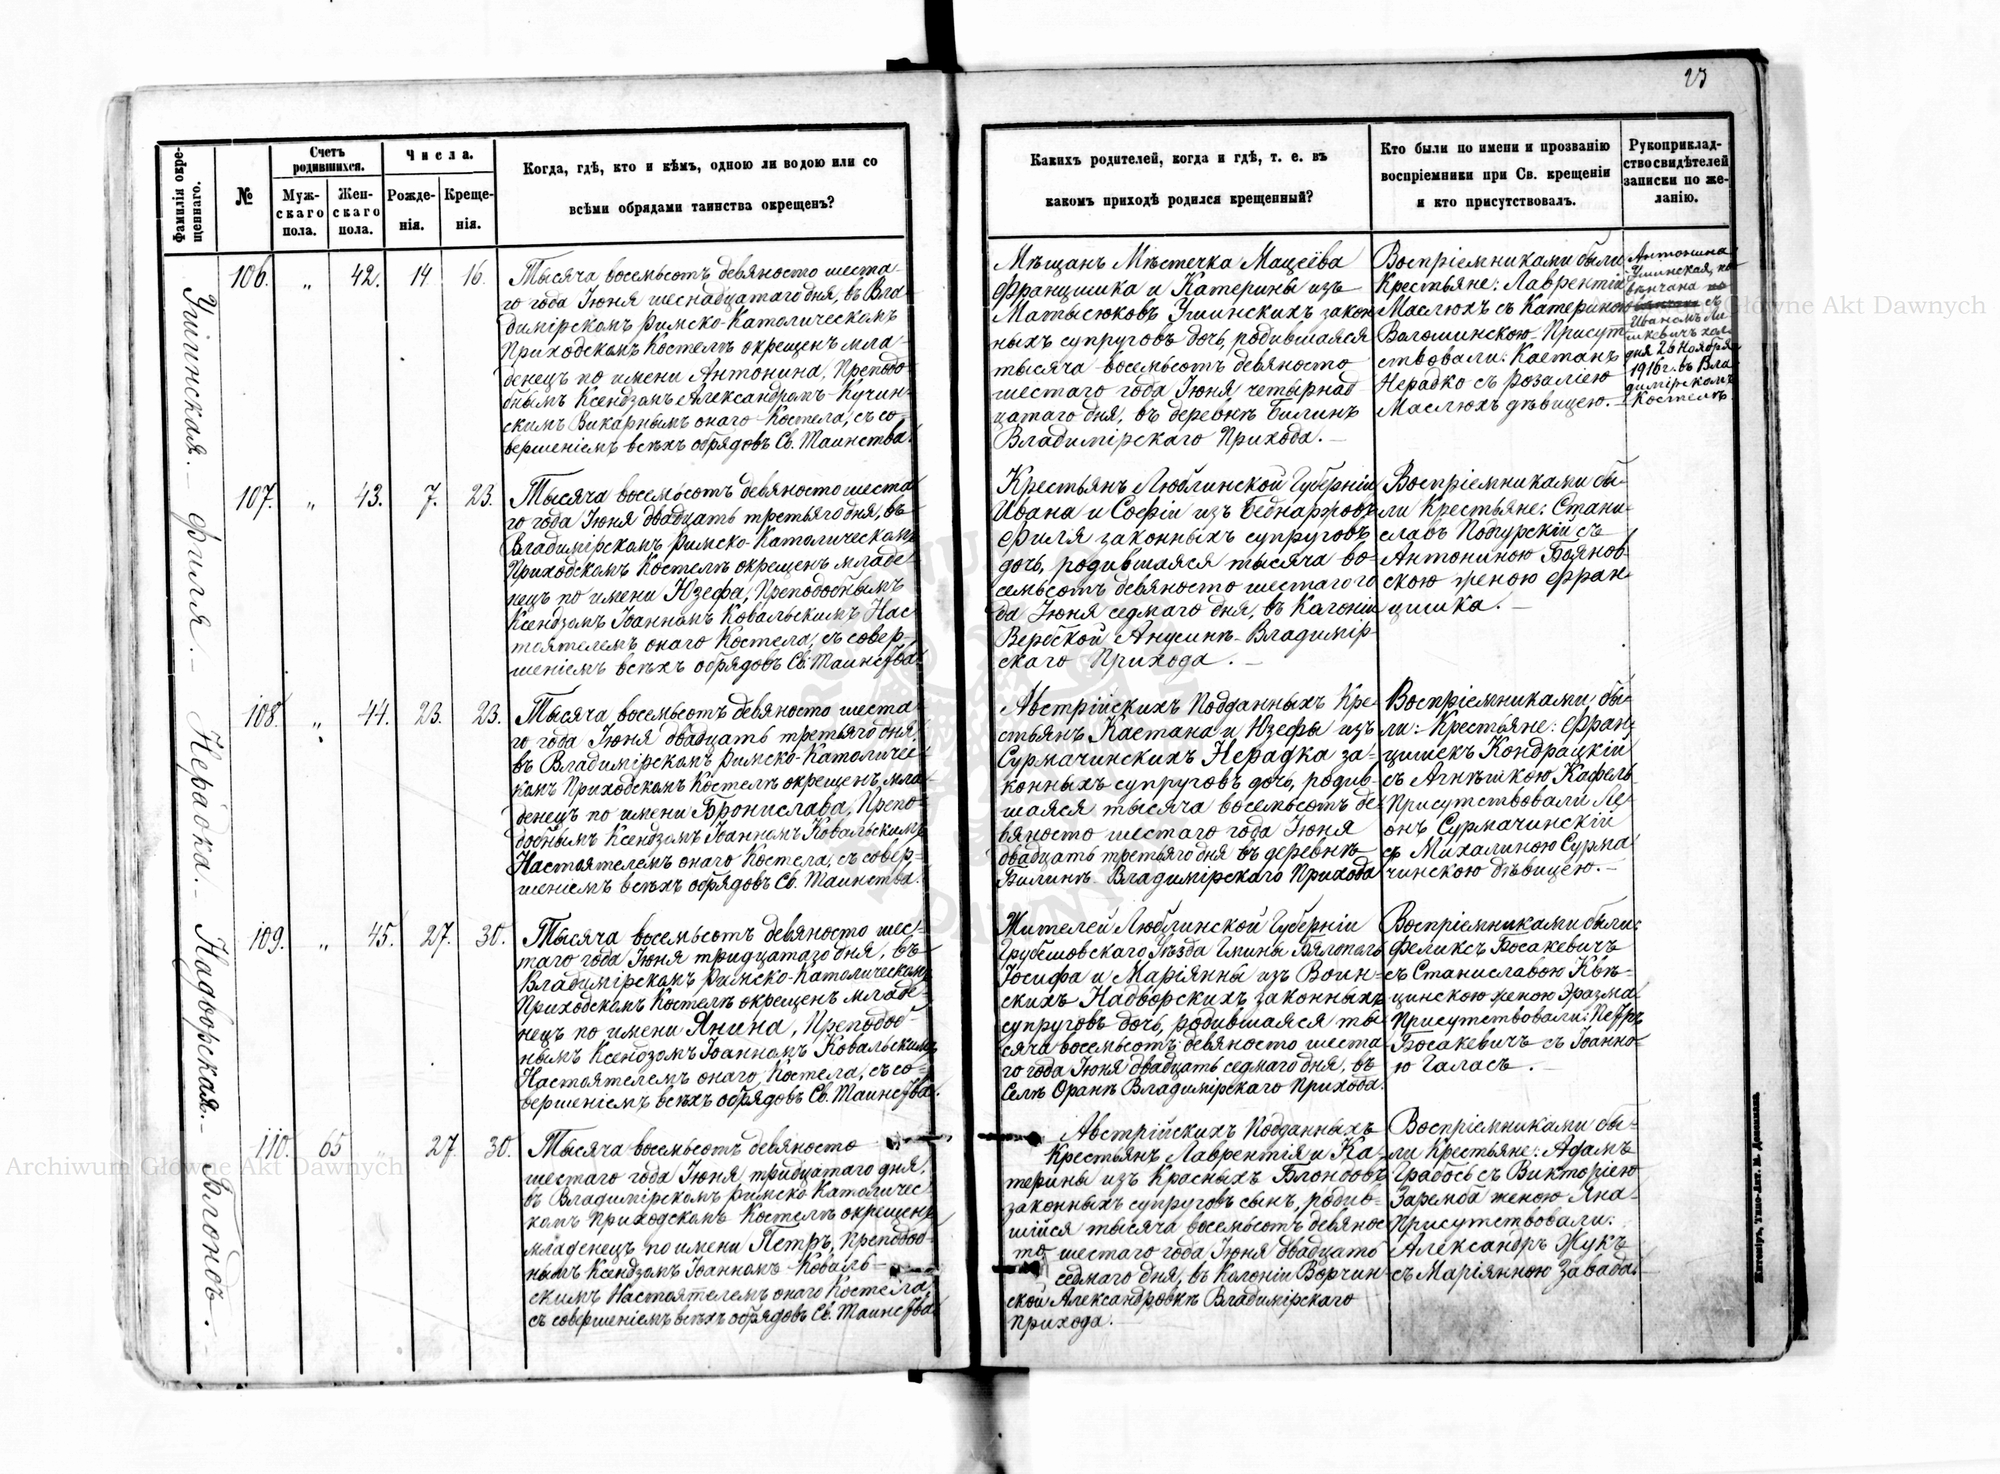 23
Фамилія окре-
щеннаго.
№
Счетъ
родившихся.
Муж-
скаго
пола.
Жен-
скаго
пола.
Числа.
Рожде-
нія.
Креще-
нія.
Когда, гдѣ, кто и кѣмъ, одною ли водою или со
всѣми обрядами таинства окрещенъ?
Какихъ родителей, когда и гдѣ, т. е. въ
какомъ приходѣ родился крещенный?
Кто были по имени и прозванію
воспріемники при Св. крещеніи
и кто присутствовалъ.
Рукоприклад-
ство свидѣтелей
записки по же-
ланію.
Ушинская.—
106. „ 42. 14 16.
Тысяча восемьсотъ девяносто шеста-
го года Іюня шеснадцатаго дня, въ Вла-
димірскомъ Римско-Католическомъ
Приходскомъ Костелѣ окрещенъ мла-
денецъ по имени Антонина, Преподо-
бнымъ Ксендзомъ Александромъ Кучин-
скимъ Викарнымъ онаго Костела, съ со-
вершеніемъ всѣхъ обрядовъ Св. Таинства.
Мѣщанъ Мѣстечка Мацеіова
Францишка и Катерины изъ
Матысюковъ Ушинскихъ закон
ныхъ супруговъ дочь, родившаяся
тысяча восемьсотъ девяносто
шестаго года Іюня четырнад
цатаго дня, въ деревнѣ Билинѣ
Владимірскаго Прихода.—
Воспріемниками были
Крестьяне: Лаврентій
Маслюхъ съ Катериною
Воломинскою. Присут
ствовали: Каетанъ
Нерадко съ Розаліею
Маслюхъ дѣвицею.—
Антонина
Ушинская, по
вѣнчана
съ
Иваномъ
дня 26 Ноября
1916 г. въ Вла
димірскомъ
Костелѣ.
Филя.—
107. „ 43. 7. 23.
Тысяча восемьсотъ девяносто шеста
го года Іюня двадцать третьяго дня, въ
Владимірскомъ Римско-Католическомъ
Приходскомъ Костелѣ окрещенъ младе-
нецъ по имени Юзефа, Преподобнымъ
Ксендзомъ Іоанномъ Ковальскимъ Нас-
тоятелемъ онаго Костела, съ совер-
шеніемъ всѣхъ обрядовъ Св. Таинства.
Крестьянъ Люблинской Губерніи
Ивана и Софіи изъ Беднаржовъ
Филя законныхъ супруговъ
дочь, родившаяся тысяча во-
семьсотъ девяносто шестаго го
да Іюня седмаго дня, въ Колоніи
Вербской Анусинѣ Владимір-
скаго Прихода.—
Воспріемниками бы-
ли Крестьяне: Стани-
славъ Подгурскій съ
Антониною Боянов-
скою женою Фран-
цишка.—
Нерадка.—
108. „ 44. 23. 23.
Тысяча восемьсотъ девяносто шеста-
го года Іюня двадцать третьяго дня,
въ Владимірскомъ Римско-Католичес-
комъ Приходскомъ Костелѣ окрещенъ мла-
денецъ по имени Бронислава, Препо-
добнымъ Ксендзомъ Іоанномъ Ковальскимъ
Настоятелемъ онаго Костела, съ совер-
шеніемъ всѣхъ обрядовъ Св. Таинства.
Австрійскихъ Подданныхъ Кре-
стьянъ Каетана и Юзефы изъ
Сурмачинскихъ Нерадка за-
конныхъ супруговъ дочь, родив-
шаяся тысяча восемьсотъ де-
вяносто шестаго года Іюня
двадцать третьяго дня въ деревнѣ
Билинѣ Владимірскаго Прихода
Воспріемниками бы-
ли: Крестьяне: Фран-
цишекъ Кондрацкій
съ Агнѣшкою Кафель
Присутствовали Ле-
онъ Сурмачинскій
съ Михалиною Сурма
чинскою дѣвицею.—
Надворская.—
109. „ 45. 27. 30.
Тысяча восемьсотъ девяносто шес-
таго года Іюня тридцатаго дня, въ
Владимірскомъ Римско-Католическомъ
Приходскомъ Костелѣ окрещенъ младе-
нецъ по имени Янина, Преподоб-
нымъ Ксендзомъ Іоанномъ Ковальскимъ
Настоятелемъ онаго Костела, съ со-
вершеніемъ всѣхъ обрядовъ Св. Таинства.
Жителей Люблинской Губерніи
Грубешовскаго Уѣзда Гмины
Іосифа и Маріянны изъ Воин-
скихъ Надворскихъ законныхъ
супруговъ дочь, родившаяся ты
сяча восемьсотъ девяносто шеста
го года Іюня двадцать седмаго дня, въ
Селѣ Оранѣ Владимірскаго Прихода.
Воспріемниками были:
Феликсъ Босакевичъ
съ Станиславою Кѣ-
цинскою женою Эразма
Присутствовали: Петръ
Босакевичъ съ Іоанно-
ю Галасъ.—
Блондъ.—
110. 65 „ 27. 30.
Тысяча восемьсотъ девяносто
шестаго года Іюня тридцатаго дня,
въ Владимірскомъ Римско Католичес-
комъ Приходскомъ Костелѣ окрещенъ
младенецъ по имени Петръ, Преподоб-
нымъ Ксендзомъ Іоанномъ Коваль-
скимъ Настоятелемъ онаго Костела,
съ совершеніемъ всѣхъ обрядовъ Св. Таинства
Австрійскихъ Подданныхъ
Крестьянъ Лаврентія и Ка-
терины изъ Красныхъ Блондовъ
законныхъ супруговъ сынъ, родив-
шійся тысяча восемьсотъ девянос
то шестаго года Іюня двадцать
седмаго дня, въ Колоніи Ворчин-
ской Александровкѣ Владимірскаго
Прихода.
Воспріемниками бы-
ли Крестьяне: Адамъ
Грабось съ Викторіею
Заремба женою Яна
Присутствовали:
Александръ Жукъ
съ Маріянною Завада.
Archiwum Główne Akt Dawnych
Archiwum Główne Akt Dawnych